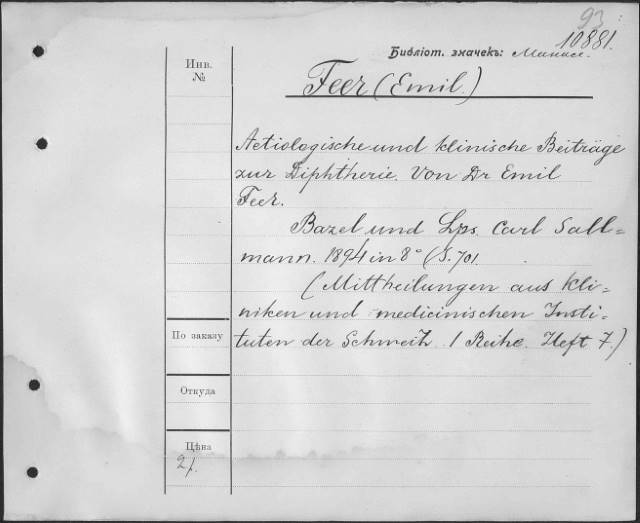 93
10881.
Библіот. значекъ:
Инв.
№
Feer (Emil.)
Aetiologische und klinische Beiträge
zur Diphtherie. Von Dr Emil
Feer.
Bazel und Lps. Carl Sall=
mann. 1894 in 8° (S. 701.
(Mittheilungen aus Kli=
niken und medicinischen Insti=
tuten der Schweitz. I Reihe. Heft 7.)
По заказу
Откуда
Цѣна
2/.